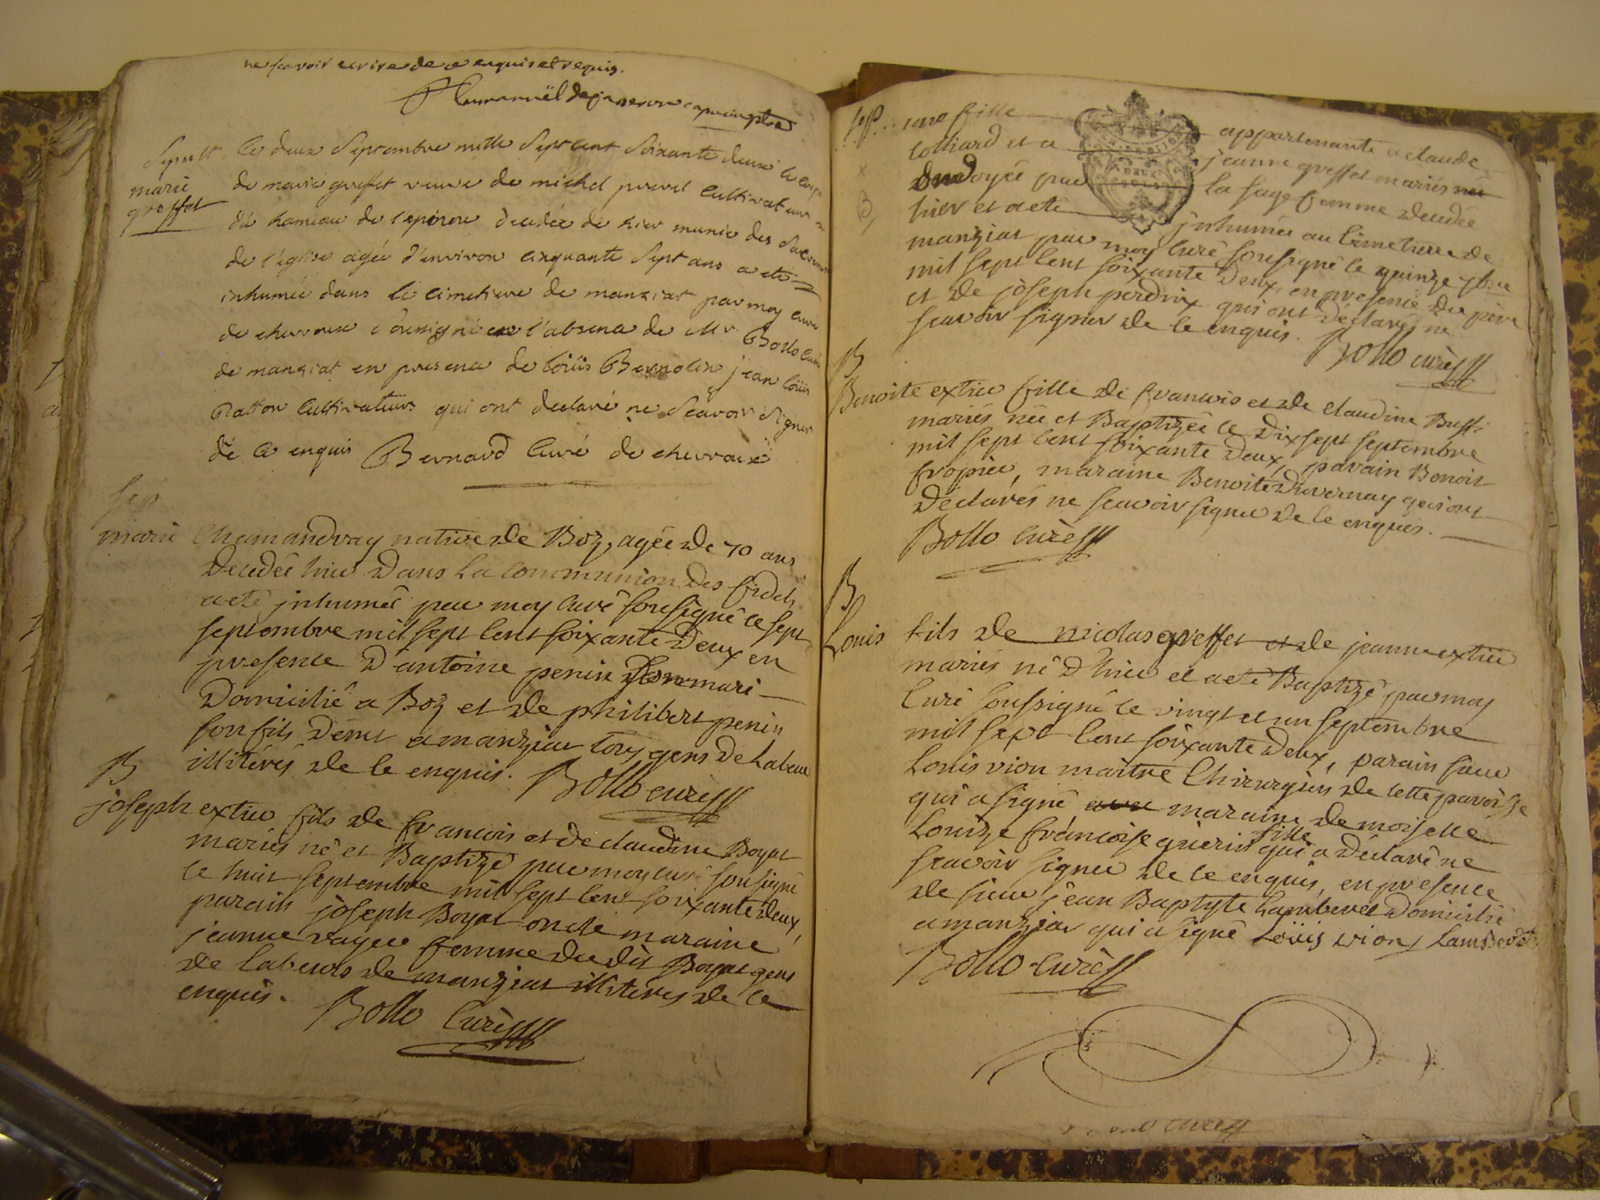 ne scavoir ecrire de ce enquis et requis.
Sepult. le deux Septembre mille Sept cent Soixante deux le corps
marie de marie greffet veuve de michel pourel Cultivateur
greffet du hameau de decedée de hier munie des Sacremens
de l'eglise agée d'environ cinquante Sept ans a eté
inhumée dans le Cimetiere de manziat par moy curé
de chevroux soussigné en l'absence de Mr Bollo curé
de manziat en presence de loüis jean loüis
Cultivateurs qui ont declaré ne Scavoir Signer
de ce enquis Bernard Curé de chevroux
Sep.
marie Chamandray native de Boz, agée de 70 ans
decedée hier dans la communion des fidels
a eté inhumée par moy curé soussigné ce sept
septembre mil sept cent soixante deux en
presence d'antoine penin son mari
domicilié a Boz et de philibert penin
son fils demt a manziat tous gens de labeur
illiterés de ce enquis. Bollo curé
B
joseph extier fils de francois et de claudine Boyat
mariés né et Baptizé par moy curé soussigné
le huit septembre mil sept cent soixante deux,
parain joseph Boyat oncle maraine
jeanne femme du dit Boyat gens
de labeurs de manziat illiterés de ce
enquis. Bollo Curé
sep. une fille appartenante a claude
colliard et a jeanne greffet mariés
ondoyée par la sage femme decedée
hier et a eté inhumée au Cimetiere de
manziat par moy curé soussigné le quinze 7bre
mil sept cent soixante deux, en presence du pere
et de joseph perdrix qui ont declaré ne
scavoir signer de ce enquis. Bollo curé
B
Benoite extier fille de francois et de claudine
mariés née et Baptizée le dix sept septembre
mil sept cent soixante deux, parain Benoit
maraine Benoite duvernay qui ont
déclarés ne scavoir signer de ce enquis.
Bollo Curé
B
Louis fils de nicolas greffet et de jeanne extier
mariés né d'hier et a eté Baptizé par moy
Curé soussigné le vingt et un septembre
mil sept cent soixante deux, parain sieur
Louis vion maitre Chirurgien de cette paroisse
qui a signé maraine demoiselle
Louize francoise guerin fille qui a declaré ne
scavoir signer de ce enquis, en presence
de sieur jean Baptyte Lamberet domicilié
a manziat qui a signé Loüis vion Lamberet
Bollo Curé